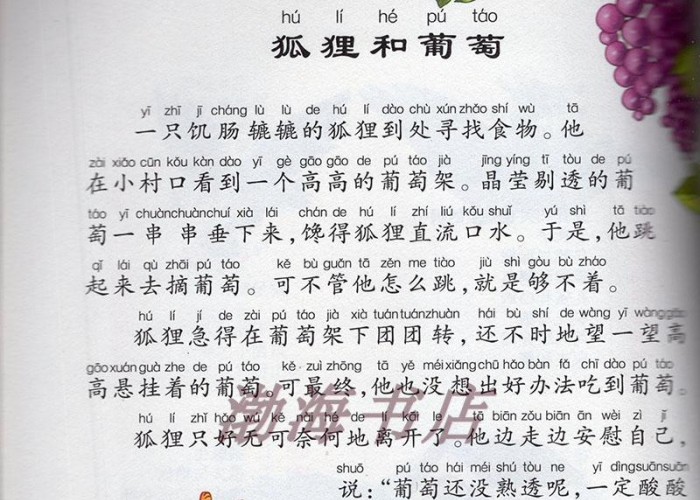 hú lí hé pú táo
狐狸和葡萄
yī zhī jī cháng lù lù de hú lí dào chù xún zhǎo shí wù tā
一只饥肠辘辘的狐狸到处寻找食物。他
zài xiǎo cūn kǒu kàn dào yī gè gāo gāo de pú táo jià jīng yíng tī tòu de pú
在小村口看到一个高高的葡萄架。晶莹剔透的葡
táo yī chuàn chuàn chuí xià lái chán de hú lí zhí liú kǒu shuǐ yú shì tā tiào
萄一串串垂下来，馋得狐狸直流口水。于是，他跳
qǐ lái qù zhāi pú táo kě bù guǎn tā zěn me tiào jiù shì gòu bù zháo
起来去摘葡萄。可不管他怎么跳，就是够不着。
hú lí jí de zài pú táo jià xià tuán tuán zhuàn hái bù shí de wàng yī wàng gāo
狐狸急得在葡萄架下团团转，还不时地望一望高
gāo xuán guà zhe de pú táo kě zuì zhōng tā yě méi xiǎng chū hǎo bàn fǎ chī dào pú táo
高悬挂着的葡萄，可最终，他也没想出好办法吃到葡萄。
hú lí zhī hǎo wú kě nài hé de lí kāi le tā biān zǒu biān ān wèi zì jǐ
狐狸只好无可奈何地离开了。他边走边安慰自己，
shuō pú táo hái méi shú tòu ne yī dìng suān suān
说：“葡萄还没熟透呢，一定酸酸
渤海书店